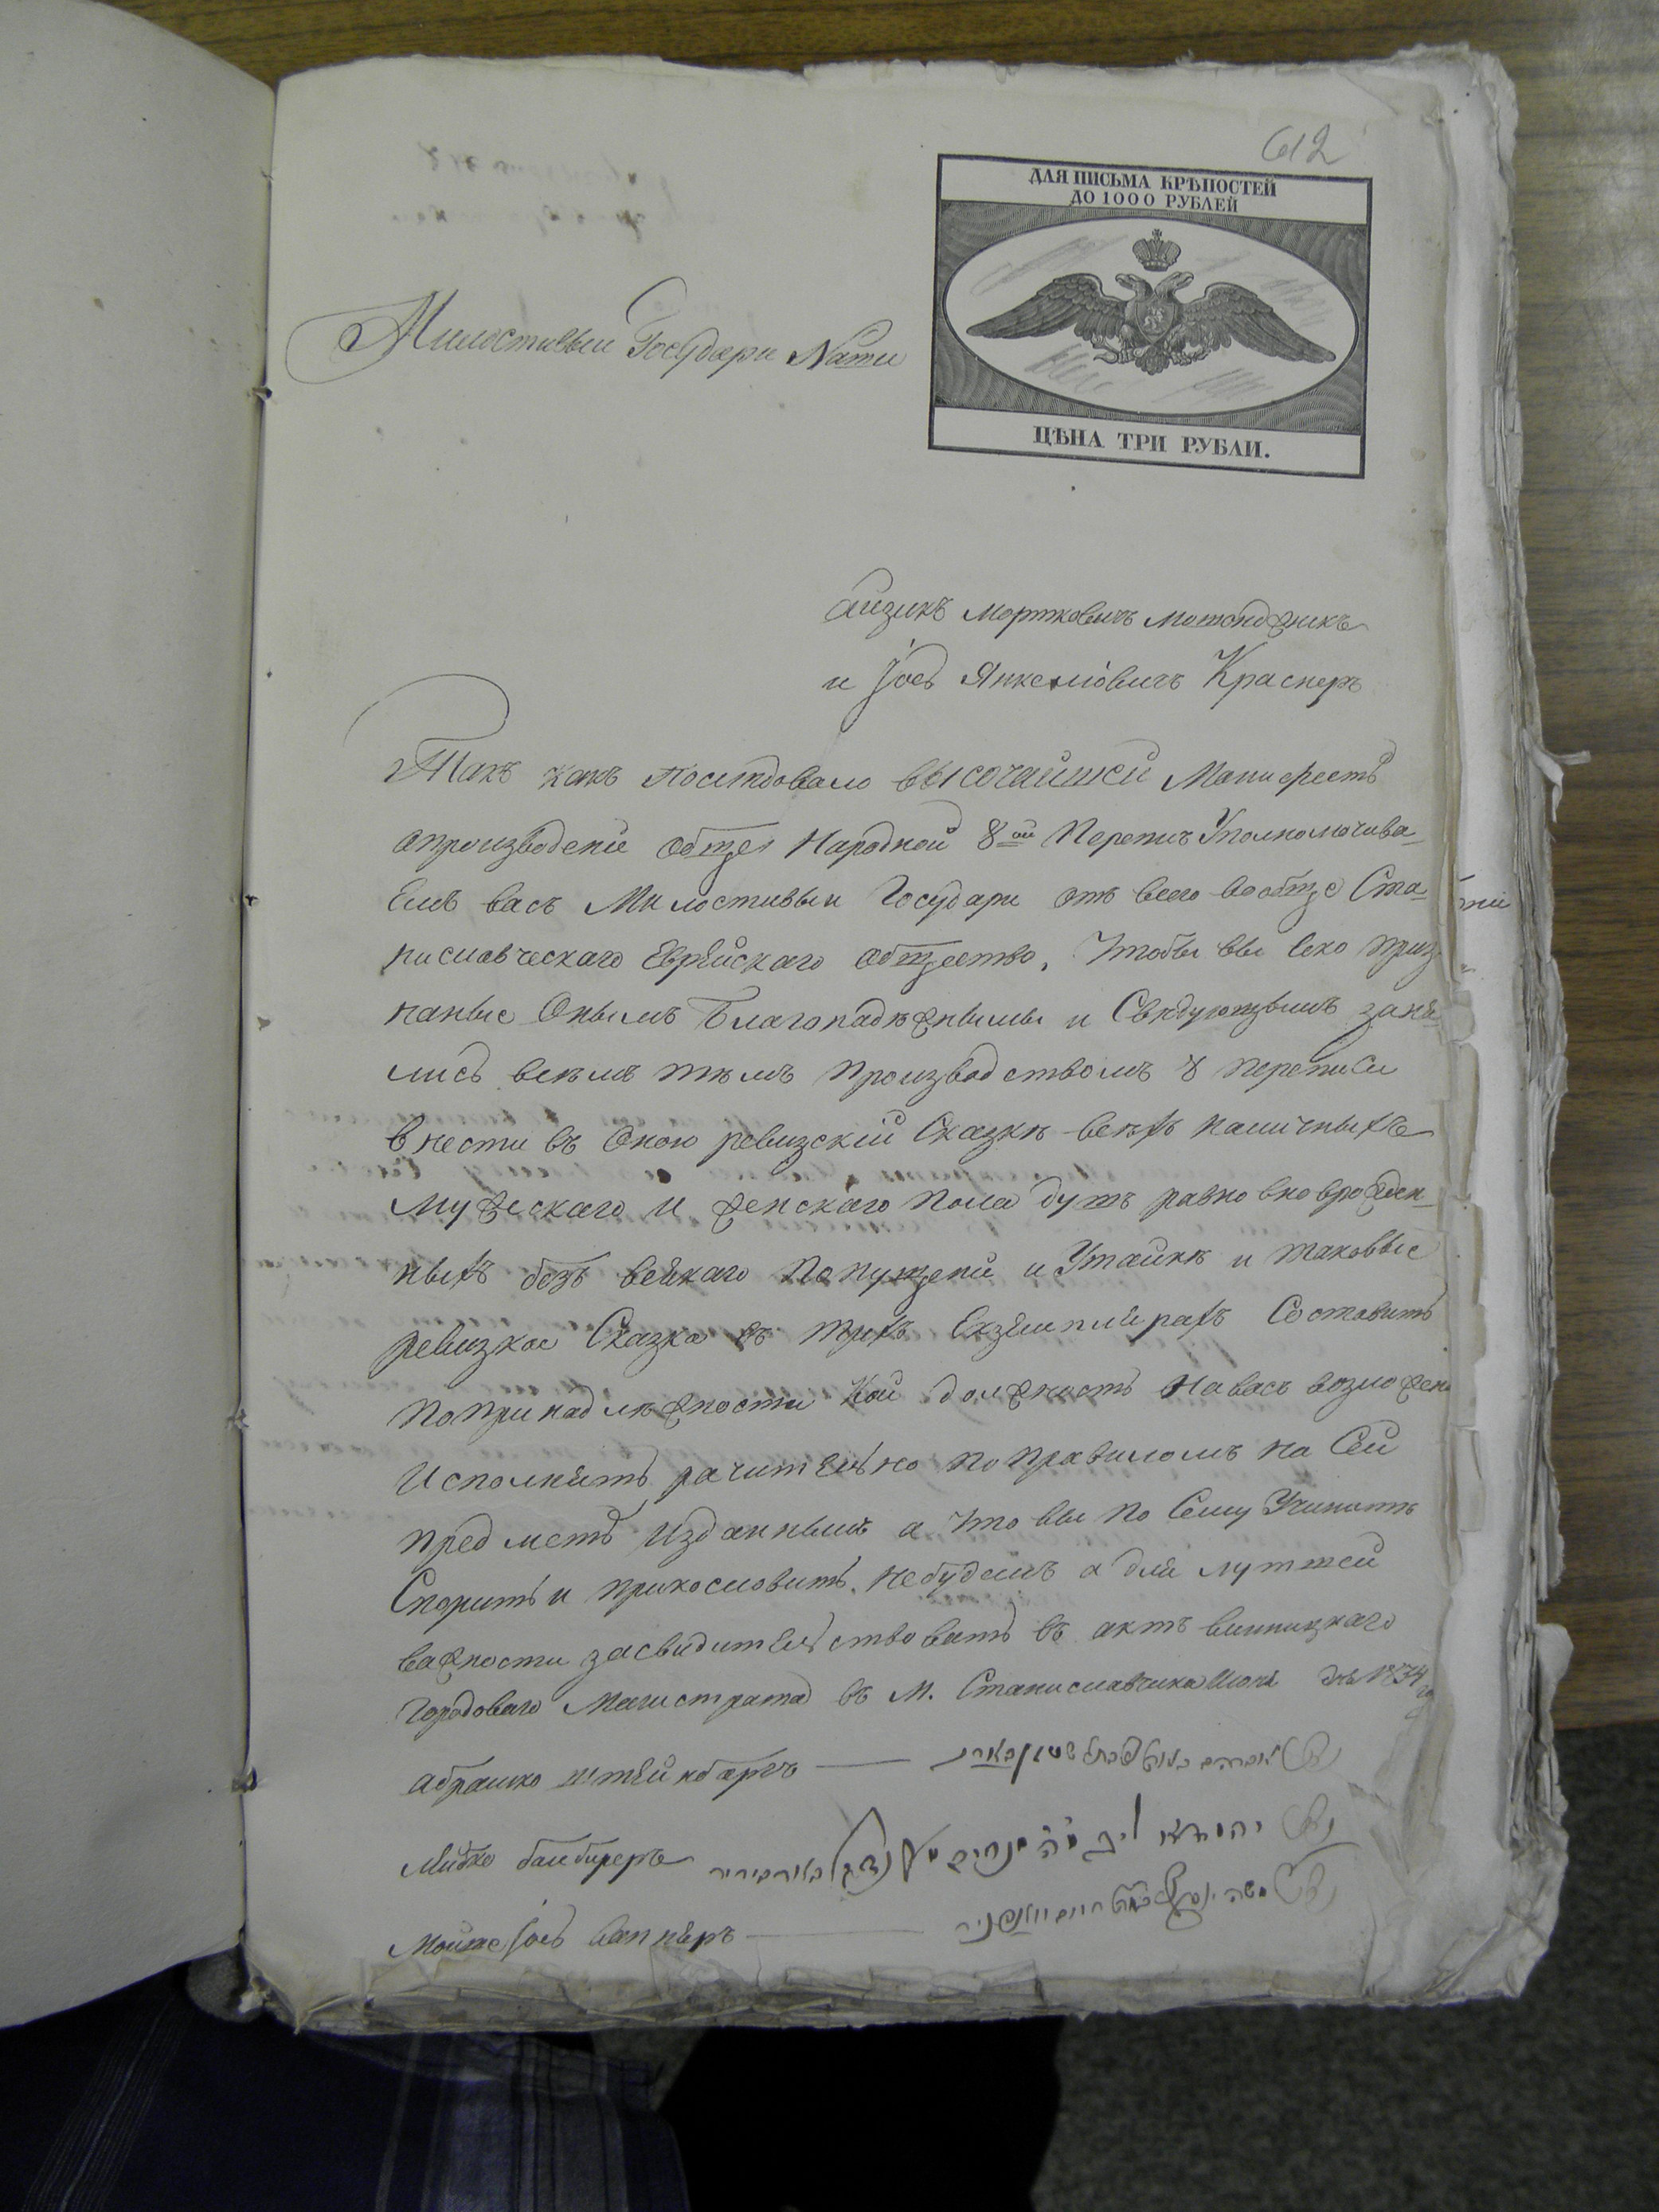 612
ДЛЯ ПИСЬМА КРѢПОСТЕЙ
ДО 1000 РУБЛЕЙ
ЦѢНА ТРИ РУБЛИ.
Милостивыи Государи Наши
Айзикъ Мортковичъ
и Іось Янкеліовичъ Краснеръ
Такъ какъ последовало высочайшей Манифестъ
опроизводеніе общей Народной 8ой Перепис Уполномочива-
емъ васъ Милостивыи Государи отъ всего вообще Ста-
ниславческаго Еврейскаго общество, Чтобы вы яко приз
наные Онымъ Благонадежнымы и Сведующымъ заня-
лись всемъ темъ производствомъ 8 переписи
внести въ Оною ревизскій Сказкѣ всехъ наличныхъ
мужескаго и женскаго пола душъ равно вновврожден-
ныхъ безъ всякаго попущеній и Утайкѣ и таковые
ревизкое Сказка въ трехъ Екземплярахъ Составить
попринадлежности Кой должность на васъ возложен
Исполнить рачительно по правиломъ на Сей
предметъ изданнымъ а что вы по Сему Учините
Спорить и прикословить небудемъ а для лутшей
важности засвидительствовать въ актъ винницкаго
городоваго Магистрата въ М. Станиславчика Июня дня 1834 го
Абрамко Штейнбаргъ
Лейбко
Мойше Іось Вапнеръ